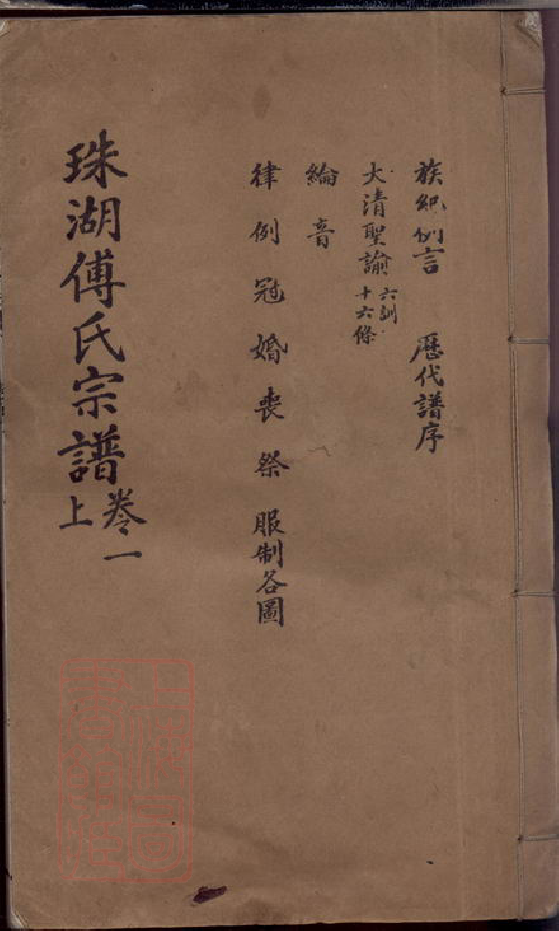 族紀例言　歷代譜序
大清聖諭 六訓
十六條
綸音
律例冠婚喪祭服制各圖
珠湖傅氏宗譜 卷一
上